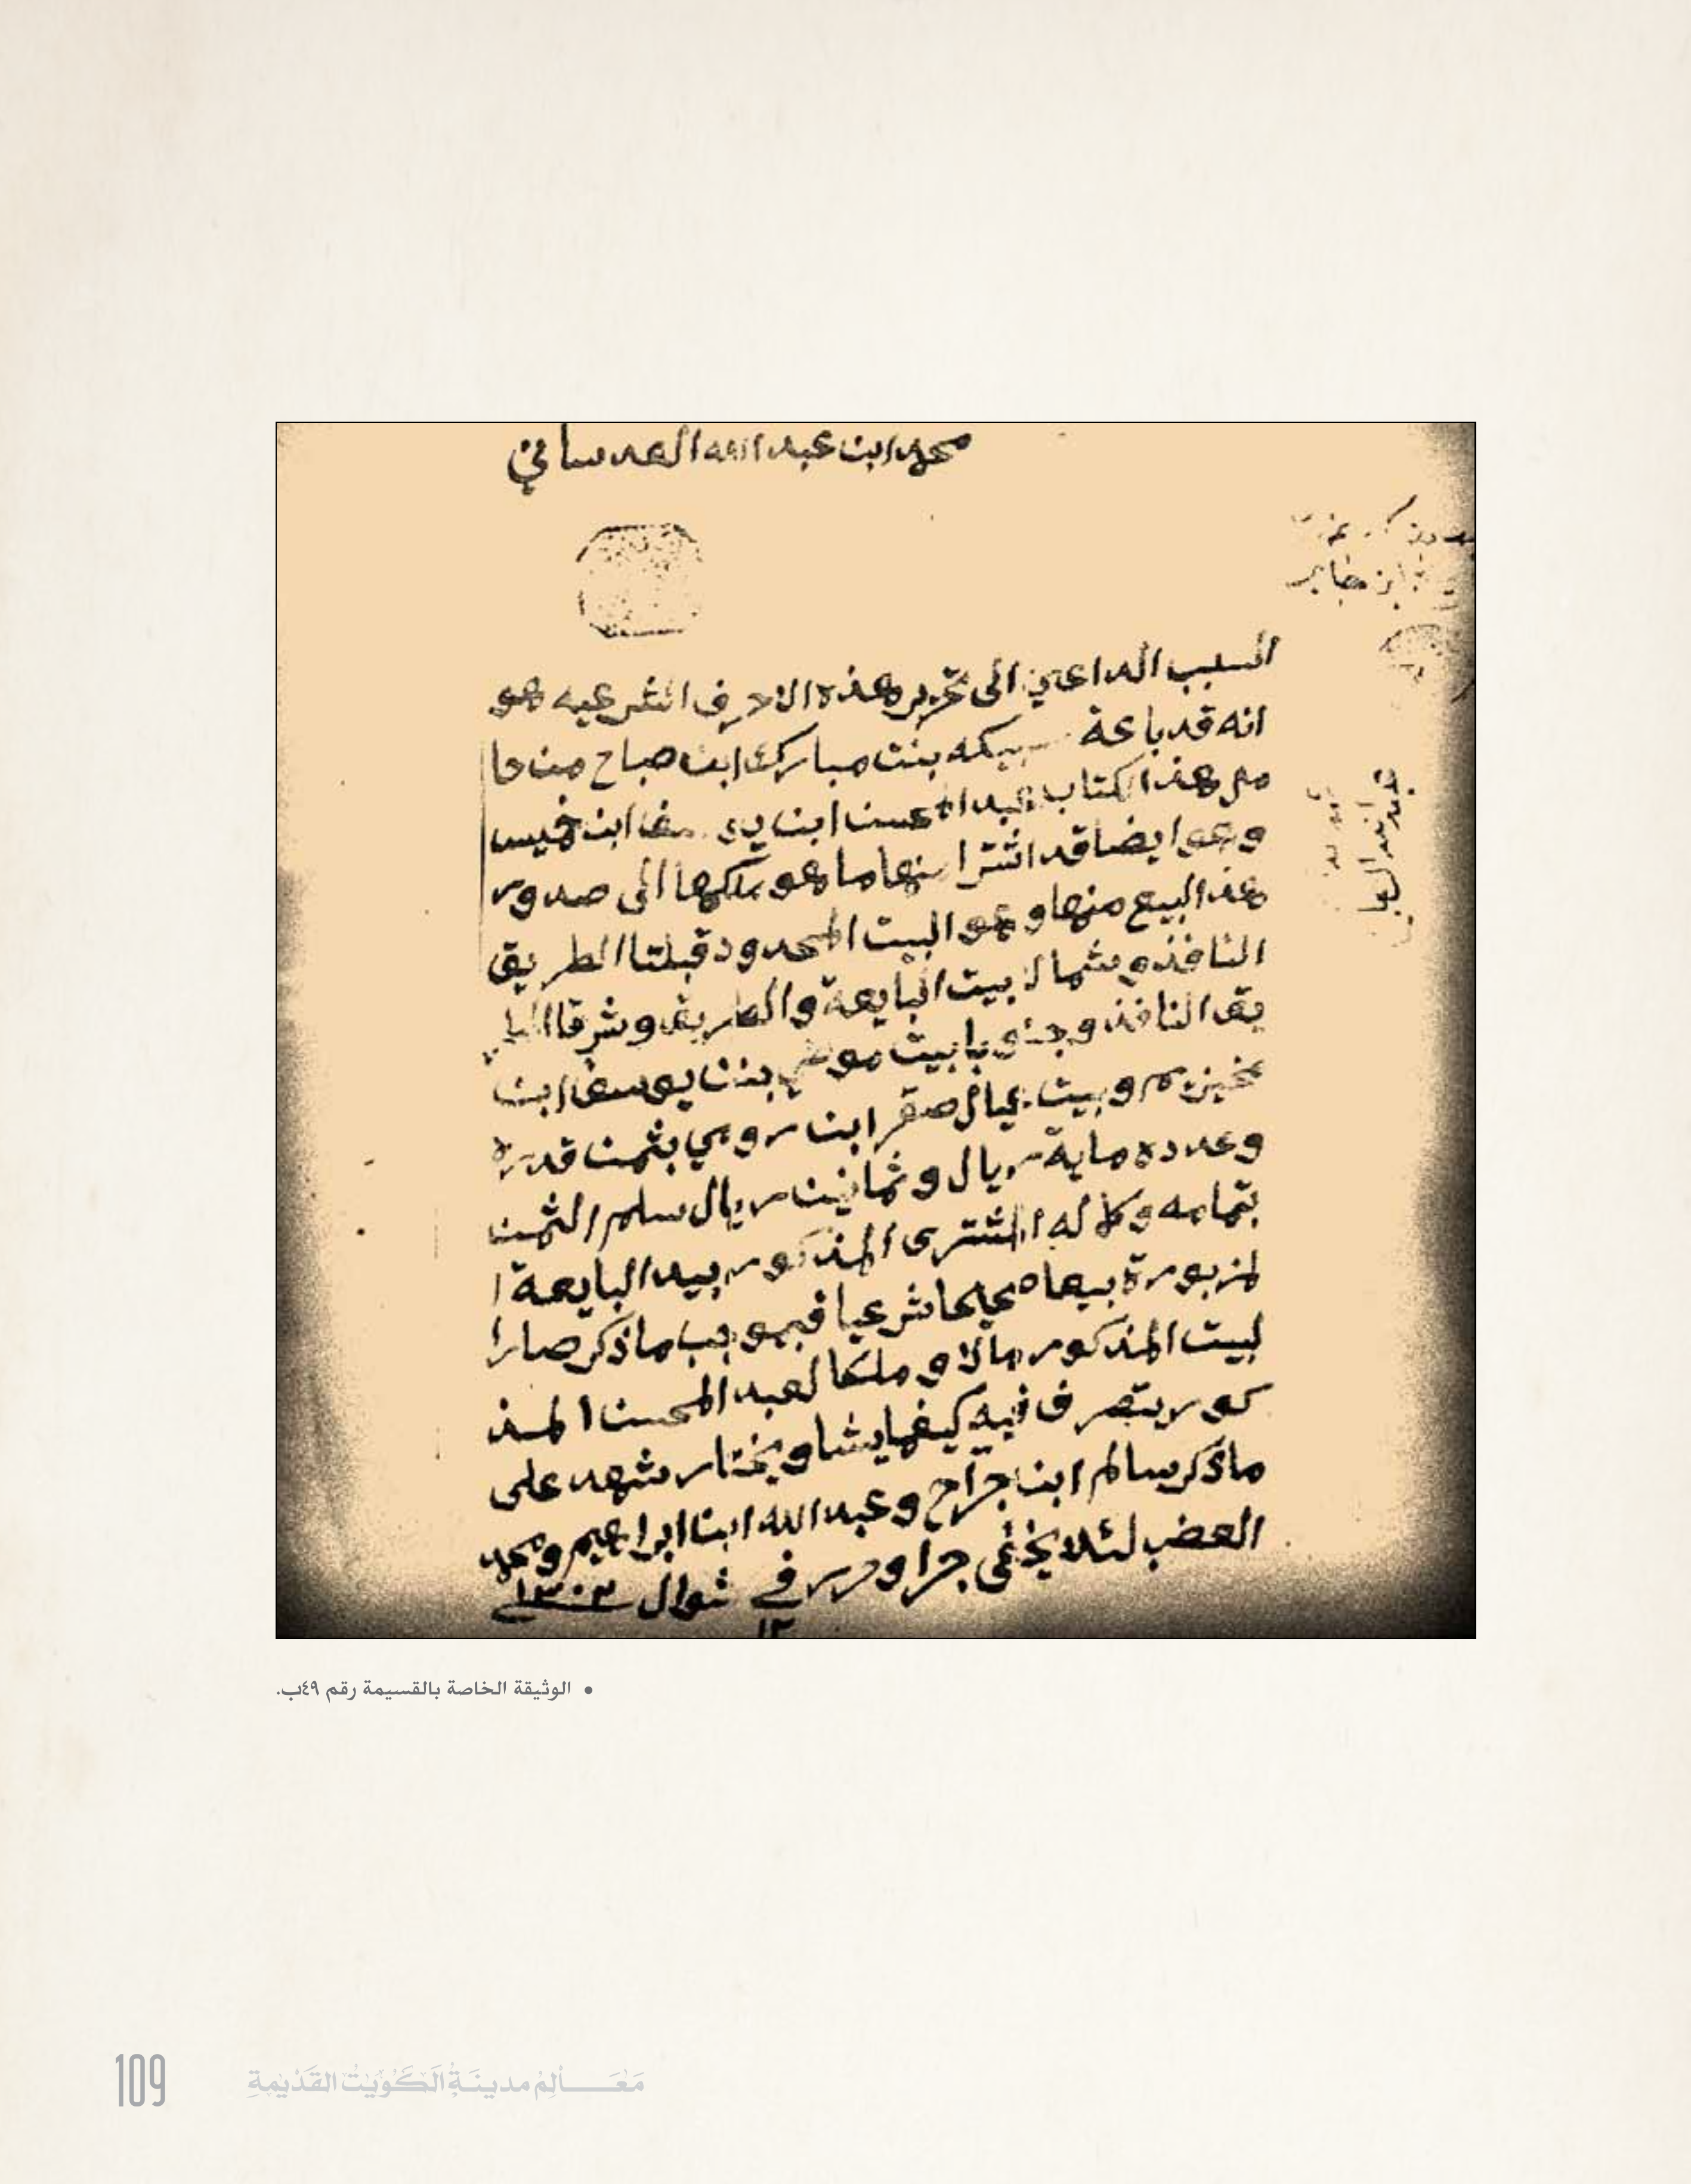 محمد ابن عبد الله العدساني
ابن جابر
السبب الداعي الى تحرير هذه الاحرف الشرعيه هو
انه قد باعة سبيكه بنت مبارك ابن صباح من حا
مل هذ الكتاب عبد المحسن ابن يوسف ابن خميس
وهو ايضا قد اشترا منها ما هو ملكها الى صدور
هذ البيع منها وهو البيت المحدود قبلتا الطريق
النافذ وشمالا بيت البايعة والطريق وشرقا الطر
يق النافذ وجنوبا بيت موضي بنت يوسف ابن
وبيت عيال صقر ابن رومي بثمن قدره
وعدده ماية ريال وثمانين ريال سلم الثمن
بتمامه وكماله المشترى المذكور بيد البايعة ا
لمزبورة بيعا صحيحا شرعيا فبموجب ما ذكر صار ا
لبيت المذكور مالا وملكا لعبد المحسن المذ
كور يتصرف فيه كيفما يشا ويختار شهد على
ما ذكر سالم ابن جراح وعبد الله ابن ابراهيم ومحمد
العضب لئلا يخفى جرا وحرر في شوال ١٣٠٣
١٣
• الوثيقة الخاصة بالقسيمة رقم ٤٩ب.
109 مَعَـــالِمُ مدينَةُ الكُوَيْتُ القَدْيمَةِ